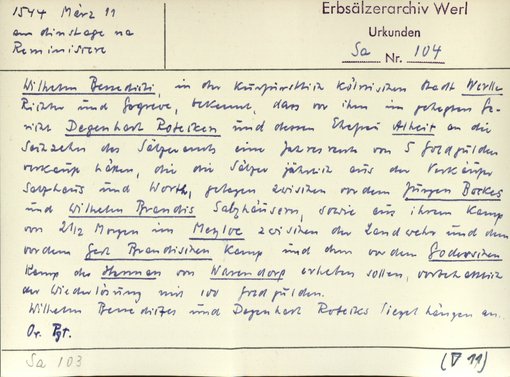 1544 März 11
am dinstage na
Reminiscere
Erbsälzerarchiv Werl
Urkunden
Sa Nr. 104
Wilhelm Benedicti, in der Kurfürstlich Kölnischen Stadt Werll
Richter und Gogreve, bekennt, dass vor ihm im gehegten Ge-
richt Degenhart Rotesken und dessen Ehefrau Alheit an die
Sälzer des Sälzeramts eine Jahresrente von 5 Goldgulden
verkauft haben, die die Sälzer jährlich aus der Verkäufer
Salzhaus und Worth, gelegen zwischen vordem Jürgen Bockes
und Wilhelm Brandis Salzhäusern, sowie aus ihrem Kamp
von 2 1/2 Morgen im Meyloe zwischen der Landwehr und dem
vordem Gert Brandischen Kamp und dem vordem
Kamp des Herman von Warendorp erheben sollen, vorbehaltlich
der Wiederlösung mit 100 Goldgulden.
Wilhelm Benedictes und Degenhart Roteskes Siegel hängen an.
Or. Pgt.
Sa 103
(V 11)